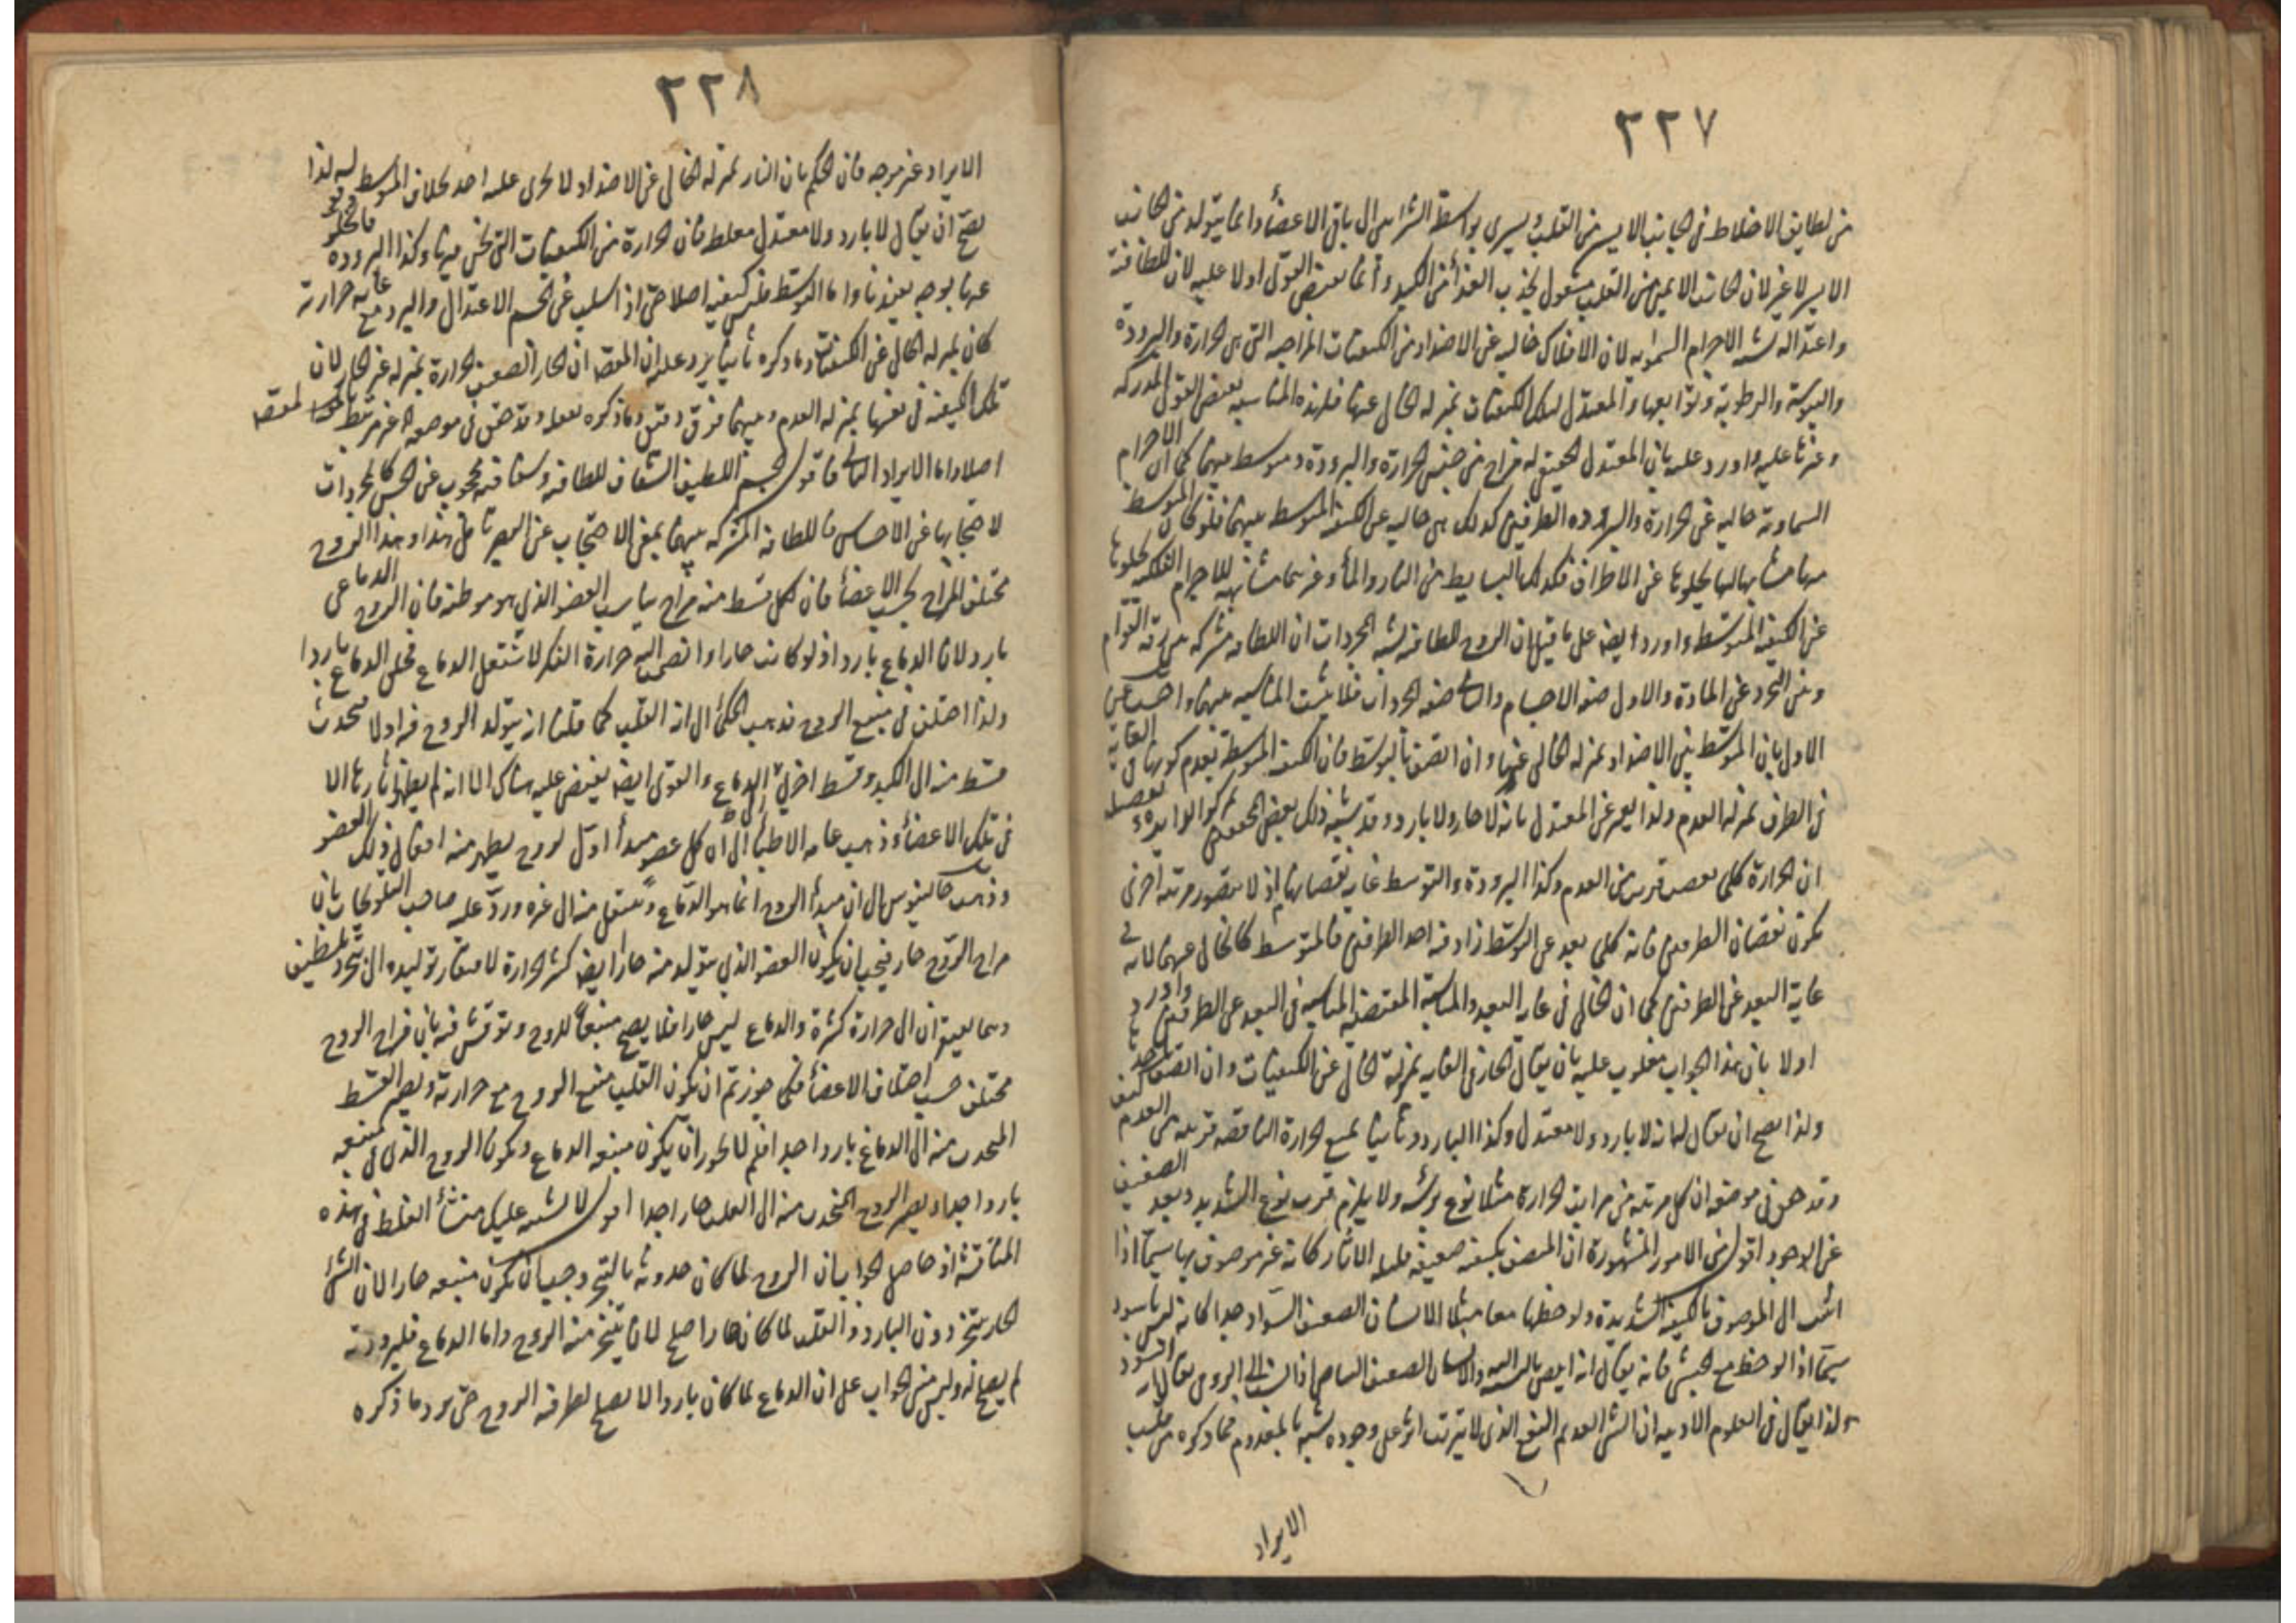 ٢٢٧
من لطايف الاخلاط فى الجانب الايسر من القلب ويسرى بواسطة الشرايين الى باقى الاعضأ وانما يتولد من الجانب
الايسر لا غير لان الجانب الايمن من القلب مشغول بجذب الغذأ من الكبد وانما يفيض القوى اولا عليه لان للطافته
واعتداله يشبه الاجرام السماويه لان الافلاك خاليه عن الاضداد من الكيفيات المزاجيه التى هى الحرارة والبرودة
واليبوسة والرطوبة وتوابعها والمعتدل لتلك الكيفيات بمنزله الخالى عنها فلهذه المناسبه يفيض القوى المدركه
وغيرها عليه واورد عليه بان المعتدل الحقيقى له مزاج من جنس الحرارة والبرودة ومتوسط بينهما كما ان الاجرام
السماوية خاليه عن الحرارة والبروده الطرفين كذلك هى خاليه عن الكيف المتوسط بينهما فلو كان المتوسط
منها مشابها لها لخلوها عن الاطراف فكذلك البسايط من النار والمأ وغيرهما مشابهه للاجرام الفلكيه لخلوها
عن الكيفية المتوسط واورد ايضا على ما قيل ان الروح للطافته يشبه المجردات ان اللطافه مشتركه بين رقة القوام
وبين التجرد عن المادة والاول صفه الاجسام والثانى صفه المجردات فلا يثبت المناسبه بينهما واجيب عن
الاول بان المتوسط بين الاضداد بمنزله الخالى عنها وان اتصف بالتوسط فان الكيف المتوسطه بعدم كونها فى الغاية
فى الطرف بمنزلة العدم ولذا يعبر عن المعتدل بانه لا حار ولا بارد وقد يثبت ذلك بعض المحققين
ان الحرارة كلما نقصت قربت من العدم وكذا البرودة والتوسط غايه نقصانها اذ لا يتصور مرتبه اخرى
يكون نقصان الطرفين فانه كلما بعد عن الوسط زاد فيه احد الطرفين فالمتوسط كالخالى عنهما لانه فى
غاية البعد عن الطرفين كما ان الخالى فى غايه البعد والمناسبة المقتضية المناسبه فى البعد عن الطرفين واورد
اولا بان هذا الجواب مقلوب عليه بان يقال الحار فى الغايه بمنزلة الخالى عن الكيفيات وان اتصف
ولذا يصح ان يقال لها انه لا بارد ولا معتدل وكذا البارد وثانيا بمنع الحرارة الناقصه قريبه من العدم
وقد حقق فى موضعه ان كل مرتبه من مراتب الحرارة مثلا نوع برأسه ولا يلزم قرب نوع الشديد وبعد الضعيف
عن الوجود اقول من الامور المشهورة ان المتصف بكيفيه ضعيفه قليله الاثار كانه غير موصوف بها سيما اذا
انتسب الى الموصوف بالكيفية الشديدة ولوحظا معا مثلا الانسان الضعيف السواد جدا كانه ليس باسود
سيما اذا لوحظ مع الحبشى فانه يقال انه ابيض بالنسبه والانسان الضعيف البياض اذا انتسب الى الرومى يقال انه اسود
ولذا يقال فى العلوم الادبيه ان الشئ العديم النفع الذى لا يترتب اثر على وجوده يشبه بالمعدوم فما ذكره من قلب
الايراد
٢٢٨
الايراد غير موجه فان الحكم بان النار بمنزله الخالى عن الاضداد لا يجرى عليه احد بخلاف المتوسط
يصح ان يقال لا بارد ولا معتدل مغلط فان الحرارة من الكيفيات التى نحن فيها وكذا البروده فالخلو
عنها بوجه يفيدنا واما التوسط فليس كيفيه اصلا حتى اذا سلب عن الجسم الاعتدال والبرد مع غايه حرارته
كان بمنزله الخالى عن الكيفيات وما ذكره ثانيا يرد عليه ان المقصود ان الحار الضعيف الحرارة بمنزله غير الحار لا ان
تلك الكيفية فى نفسها بمنزله العدم وبينهما فرق دقيق وما ذكره نقله وتحقق فى موضعه غير مرتبط
اصلا واما الايراد الثانى فاقول الجسم اللطيف الشفاف للطافته وشفافيته محجوب عن الحس كالمجردات
لاحتجابها عن الاحساس فاللطافة المشتركه بينهما بمعنى الاحتجاب عن البصر تأمل هذا وهذا الروح
مختلف المزاج بحسب الاعضأ فان لكل قسط منه مزاج يناسب العضو الذى هو موطنه فان الروح الدماغى
بارد لان الدماغ بارد اذ لو كانت حارا وانضم اليه حرارة الفكر لاشتعل الدماغ فجعل الدماغ باردا
ولذا اختلف فى منبع الروح فذهب الحكمأ الى انه القلب كما قلنا انه يتولد الروح فيه اولا فيحدث
قسط منه الى الكبد وقسط اخر الى الدماغ والقوى ايضا يفيض عليه هناك الا انه لم يظهر اثارها الا
فى تلك الاعضأ وذهب عامه الاطبأ الى ان كل عضو مبدأ اول لروح يظهر منه افعال ذلك العضو
وذهب جالينوس الى ان مبدأ الروح انما هو الدماغ وينتقل منه الى غيره وردّ عليه صاحب التلويحات بان
مزاج الروح حار فيجب ان يكون العضو الذى يتولد منه حارا ايضا كثير الحرارة لافتقار توليده الى تبخير وتلطيف
وهما يفتقران الى حرارة كثيرة والدماغ ليس حارا فلا يصح منبعاً للروح ونوقش فيه بان مزاج الروح
مختلف حسب اختلاف الاعضأ فكما جوزتم ان يكون القلب منبع الروح مع حرارته ويصير القسط
المنحدر منه الى الدماغ باردا جدا فلم لا يجوز ان يكون منبعه الدماغ ويكون الروح الذى فى منبعه
باردا جدا ويصير الروح المنحدر منه الى القلب حارا جدا اقول لا يشتبه عليك منشأ الغلط فى هذه
المناقشة اذ حاصل الجواب ان الروح لما كان حدوثه بالتبخر وجب ان يكون منبعه حارا لان الشئ
الحار يتبخر دون البارد والقلب لما كان حارا صلح لان يتبخر منه الروح واما الدماغ فلبرودته
لم يصلح له وليس مبنى الجواب على ان الدماغ لما كان باردا لا يصلح لظرفيه الروح حتى يرد ما ذكره